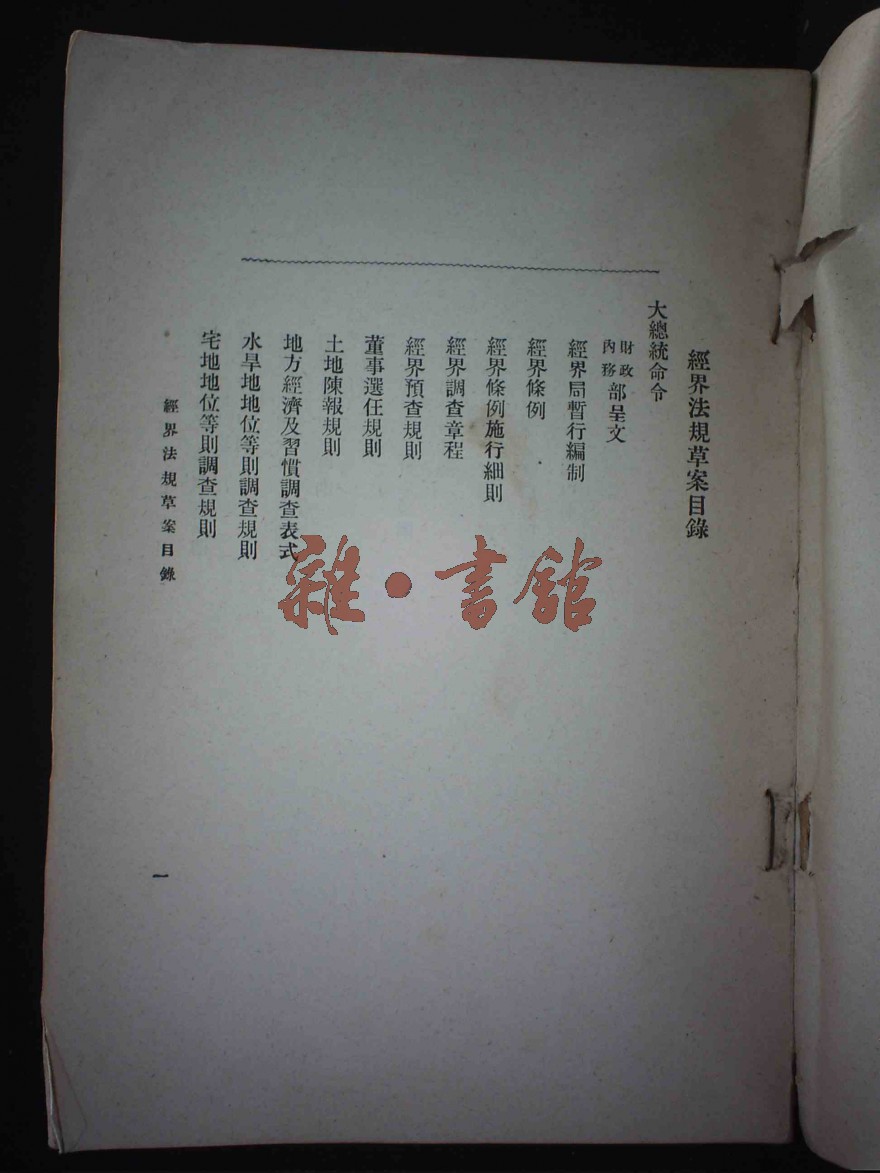 經界法規草案目錄
大總統命令
財政內務部呈文
經界局暫行編制
經界條例
經界條例施行細則
經界調查章程
經界預查規則
董事選任規則
土地陳報規則
地方經濟及習慣調查表式
水旱地地位等則調查規則
宅地地位等則調查規則
經界法規草案目錄
一
雜·書館